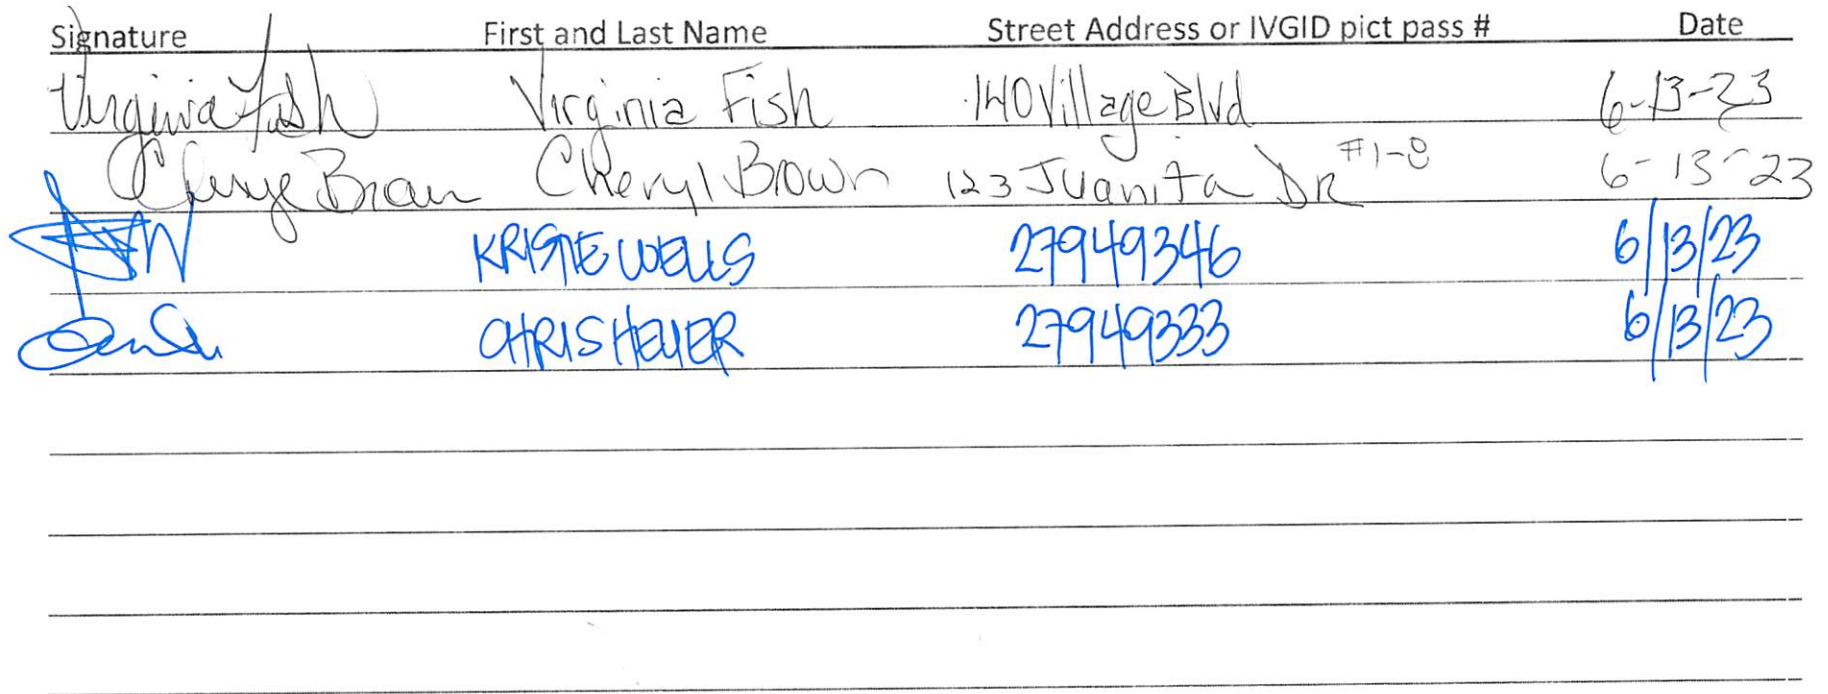 Signature First and Last Name Street Address or IVGID pict pass # Date
Virginia Fish Virginia Fish 140 Village Blvd 6-13-23
Cheryl Brown Cheryl Brown 123 Juanita DR #1-8 6-13-23
KRISTIE WELLS 27949346 6/13/23
CHRIS HEYER 27949333 6/13/23